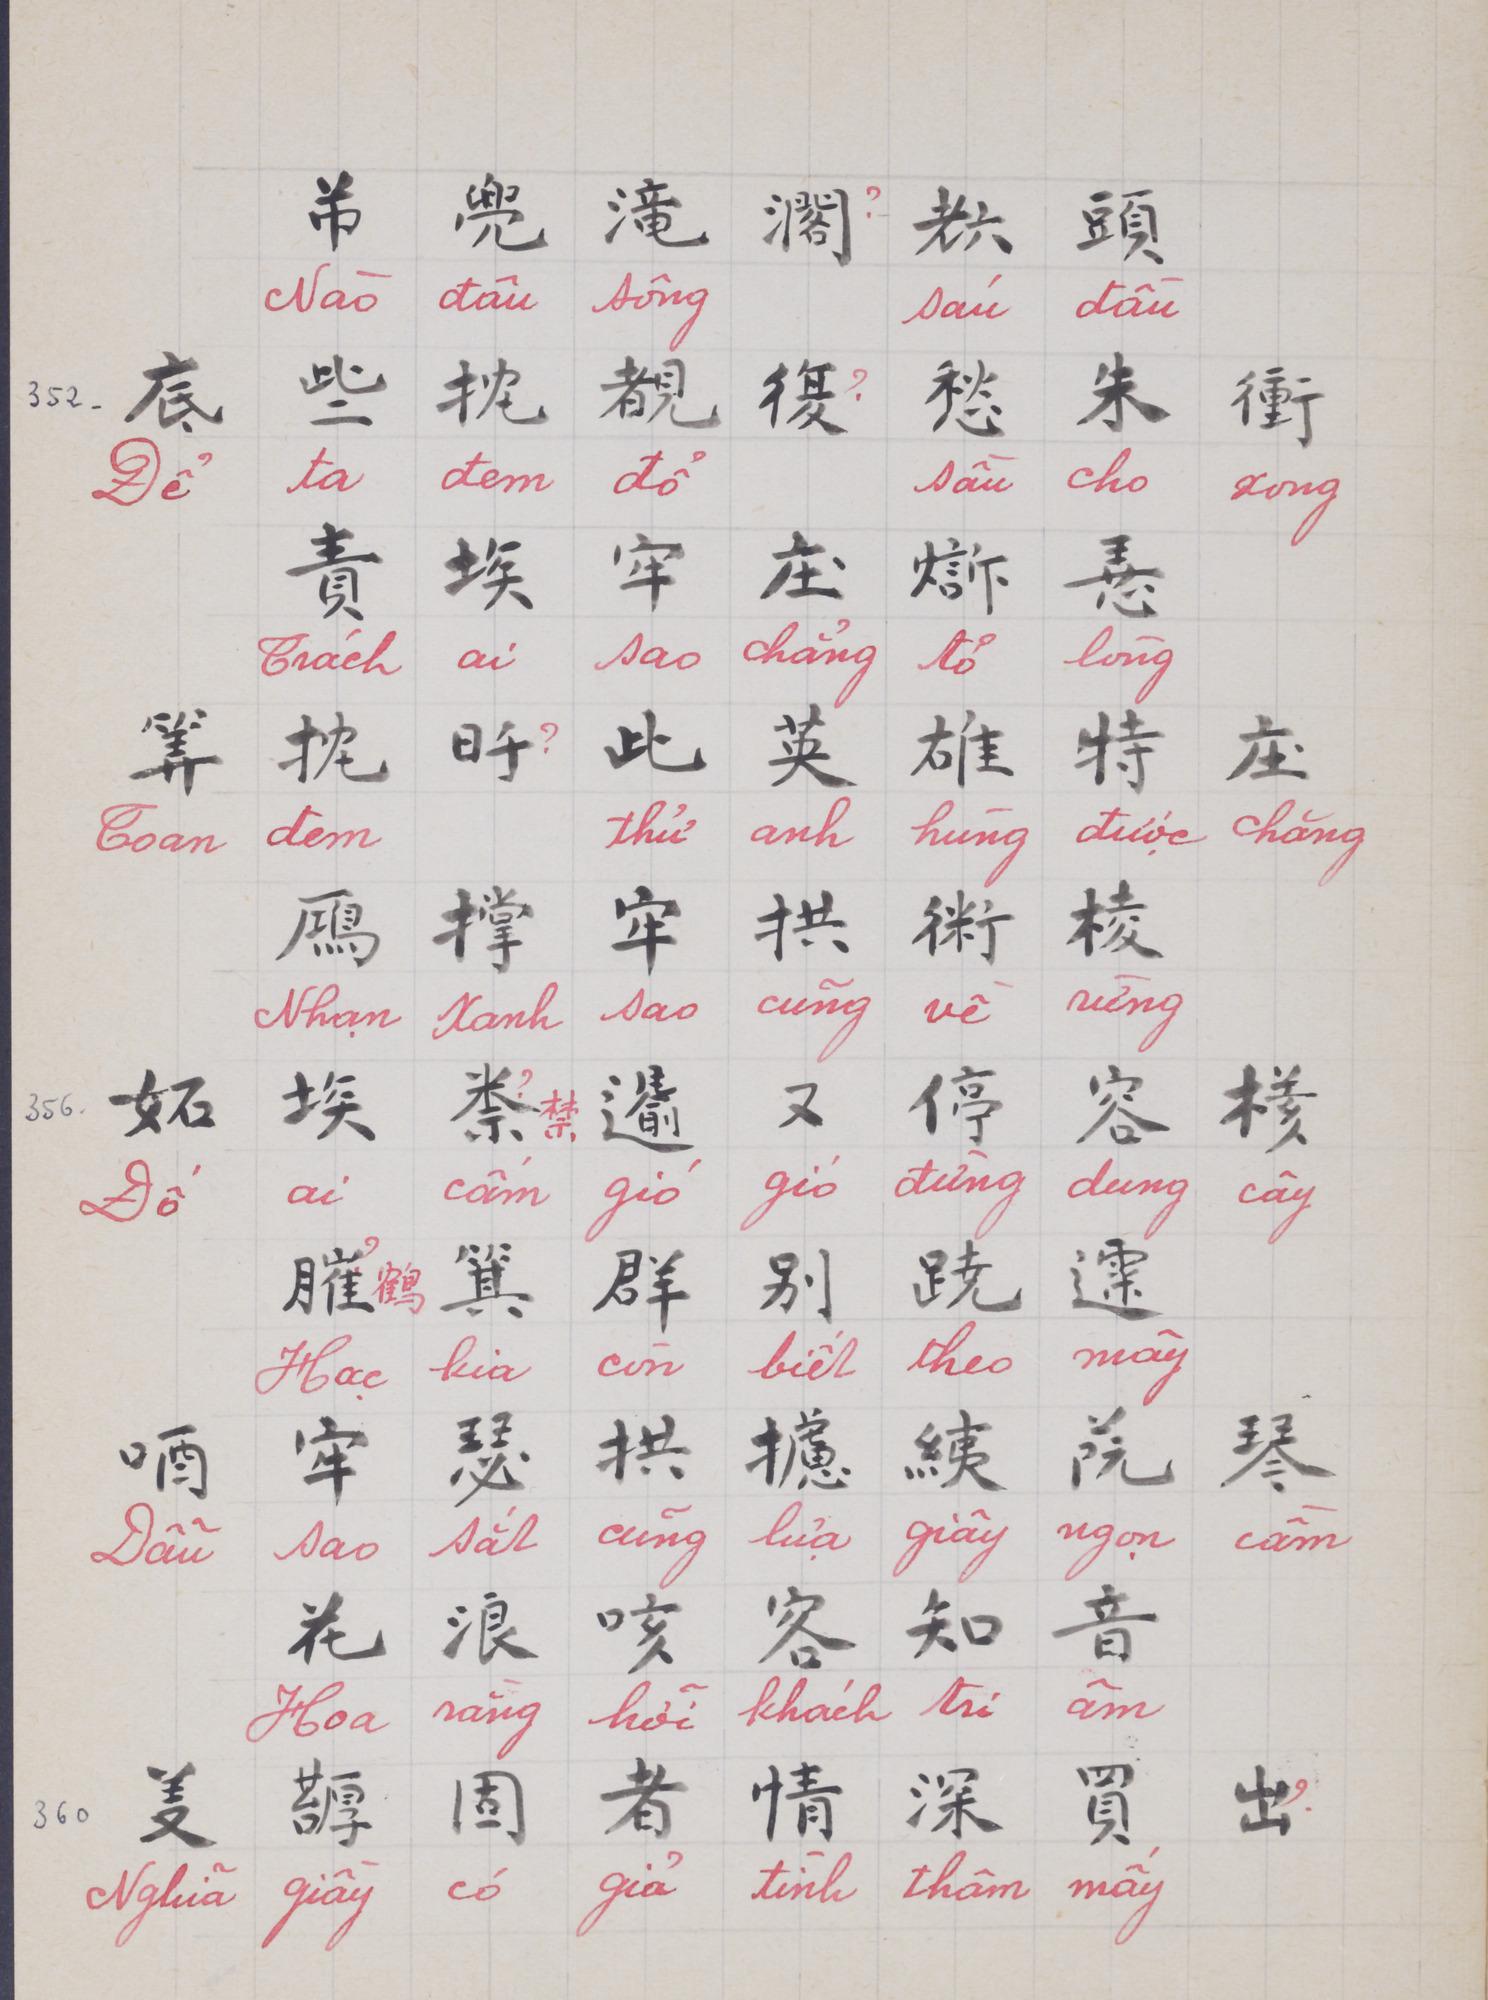 吊 兠 滝 濶? 𦒹 頭
Nào đâu sông sáu đầu
352- 底 些 扰 覩 復? 愁 朱 衝
Để ta đem đổ sầu cho xong
責 埃 牢 庄 𤏣 𢚸
Trách ai sao chẳng tỏ lòng
筭 扰 旿? 此 英 雄 特 庄
Toan đem thử anh hùng được chăng
鴈 撑 牢 拱 術 棱
Nhạn xanh sao cũng về rừng
356. 妬 埃 禁? 禁 又 停 容 核
Đố ai cấm gió gió đừng dung cây
鶴 箕 群 别 蹺 𩄲
Hạc kia còn biết theo mây
唒 牢 瑟 拱 攄 𦀊 阮 琴
Dẫu sao sắt cũng lựa giây ngọn cầm
花 浪 咳 客 知 音
Hoa rằng hỡi khách tri âm
360 固 者 情 深 買 出?
Nghĩa giầy có giả tình thâm mấy